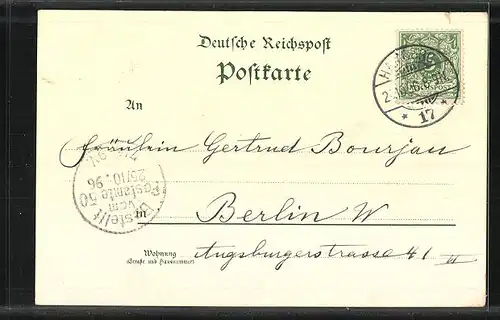 Deutsche Reichspost
Postkarte
An
Fräulein Gertrud Bourjau
in Berlin W
Wohnung
(Straße und Hausnummer)
Augsburgerstrasse 41 III
* 17 *
Bestellt
vom
Postamte 50
25/10. 96